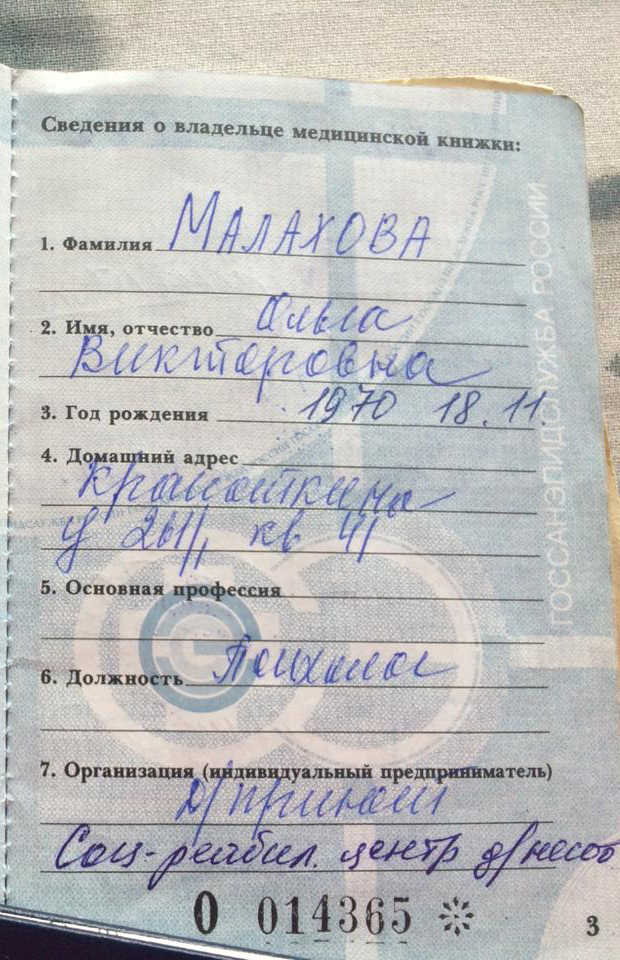 Сведения о владельце медицинской книжки:
1. Фамилия МАЛАХОВА
2. Имя, отчество Ольга
Викторовна
3. Год рождения 1970 18.11.
4. Домашний адрес
Кропоткина
кв 41
5. Основная профессия
6. Должность Психолог
7. Организация (индивидуальный предприниматель)
д/приют
Соц-реабил. центр д/несов
О 014365
3
ГОССАНЭПИДСЛУЖБА РОССИИ